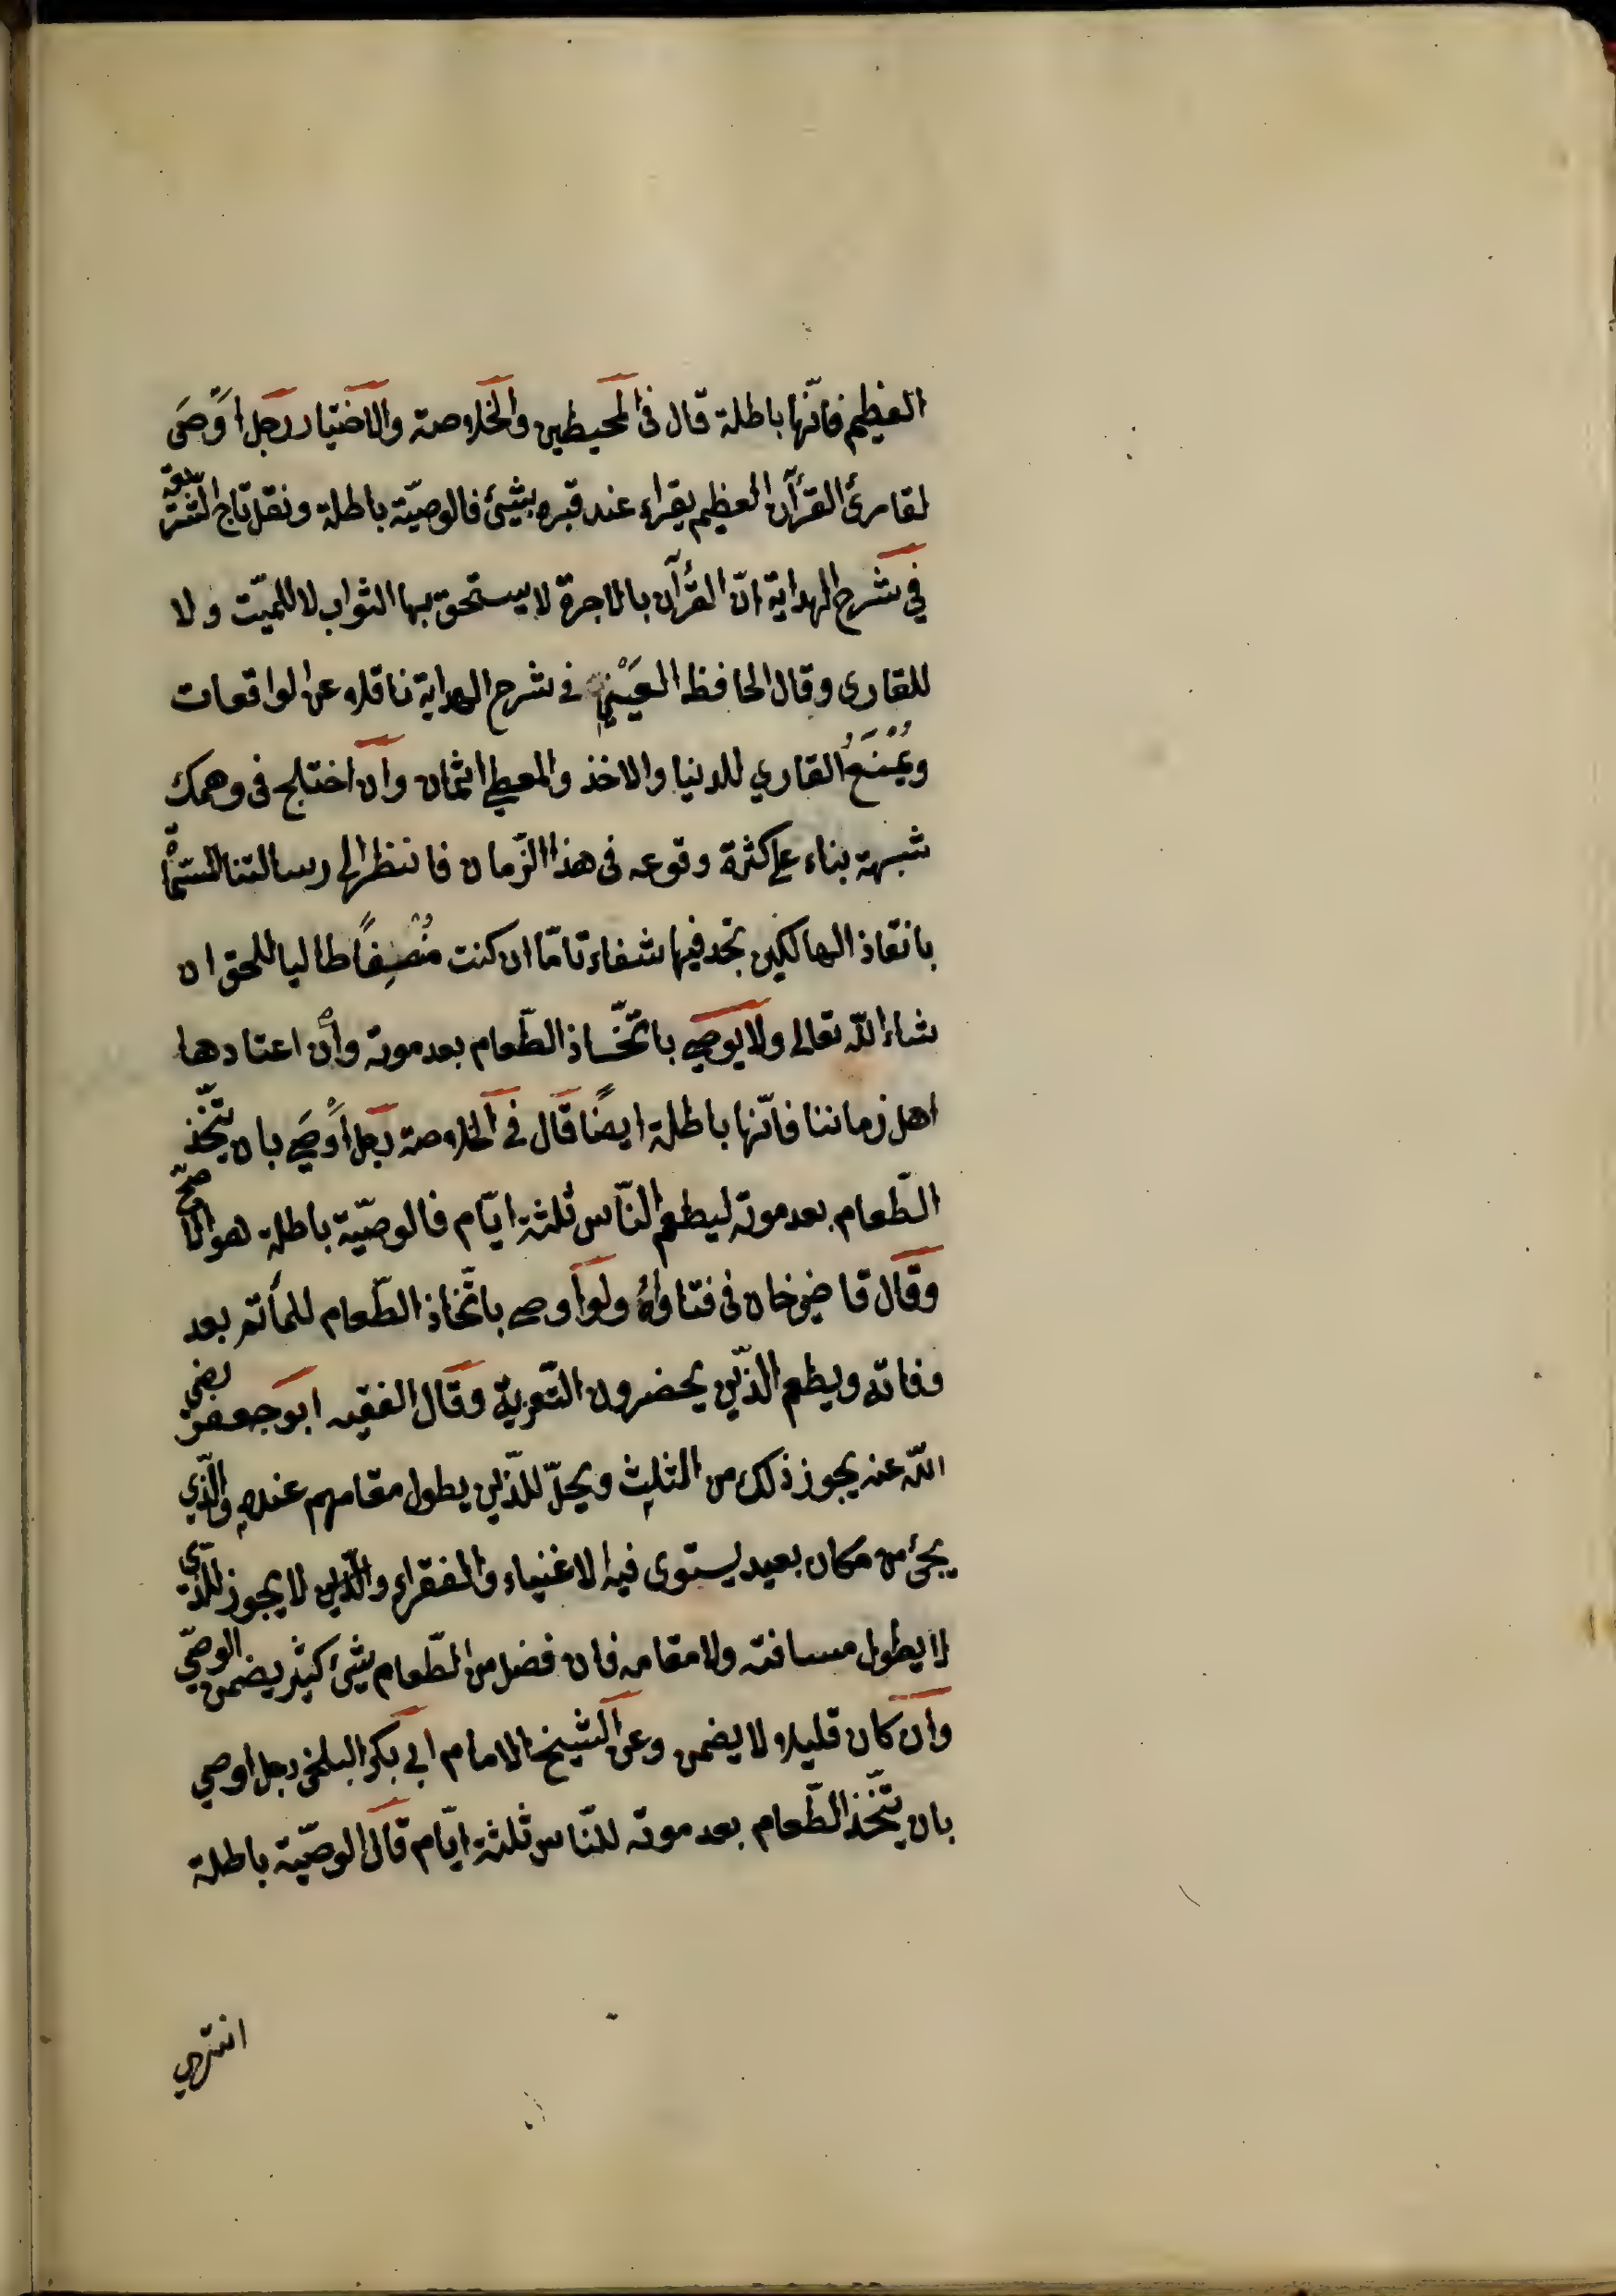 العظيم فانّها باطلة قال فى المحيطين والخلاصة والاختيار رجل اَوْصَى
لقارئ القرآن العظيم يقراء عند قبره بشيئ فالوصيّة باطلة ونقل تاج الشّريعة
في شرح الهداية انّ القرآن بالاجرة لا يستحق بها الثواب لا للميّت ولا
للقارى وقال الحافظ العَيْنِي فى شرح الهداية ناقلا عن الواقعات
ويُمْنَعُ القاري للدنيا والاخذ والمعطي اثمان وان اختلج فى وهمك
شبهة بناء على كثرة وقوعه فى هذا الزّمان فانظر الى رسالتنا المسمّاة
بانقاذ الهالكين تجد فيها شفاء تامّا ان كنت مُنْصِفًا طالبا للحق ان
شاء اللّه تعالى ولا يوصي باتّخاذ الطّعام بعد موته وأن اعتادها
اهل زماننا فانّها باطلة ايضًا قال فى الخلاصة رجل اَوْصَي بان يتّخذ
الطّعام بعد موته ليطعم النّاس ثلثة ايّام فالوصيّة باطلة هو الاصحّ
وقال قاضيخان فى فتاواه ولو اوصى باتّخاذ الطّعام للمأتم بعد
وفاته ويطعم الذّين يحضرون التّعزية وقال الفقيه ابو جعفر رضى
اللّه عنه يجوز ذلك من الثلث ويحلّ للذّين يطول مقامهم عنده والّذي
يجئ من مكان بعيد يستوى فيه الاغنياء والفقراء والّذين لا يجوز للّذي
لا يطول مسافته ولا مقامه فان فضل من الطّعام شئ كثير يضمن الوصّي
وان كان قليلا لا يضمن وعن الشيخ الامام ابي بكر البلخى رجل اوصي
بان يتّخذ الطّعام بعد موته للنّاس ثلثة ايّام قال الوصيّة باطلة
انتهي